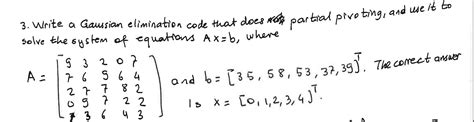 3. Write a Gaussian elimination code that does partial pivoting, and use it to
solve the system of equations Ax=b, where
A = [9 3 2 0 7
7 6 9 6 4
2 7 7 8 2
0 9 7 2 2
7 3 6 4 3]
and b = [35, 58, 53, 37, 39]ᵀ. The correct answer
is x = [0, 1, 2, 3, 4]ᵀ.